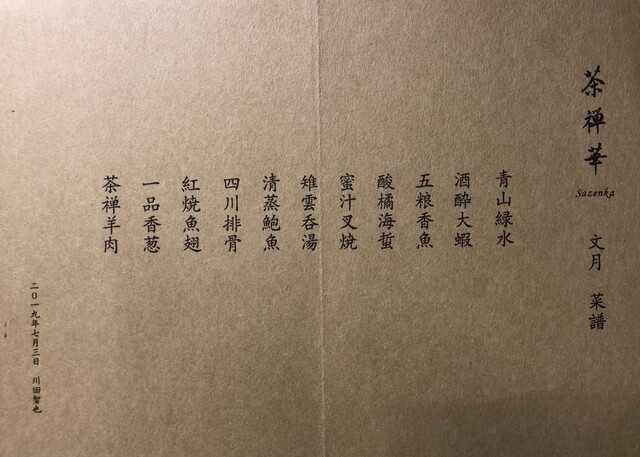 茶禅華
Sazenka
文月 菜譜
青山緑水
酒酔大蝦
五粮香魚
酸橘海蜇
蜜汁叉焼
雉雲呑湯
清蒸鮑魚
四川排骨
紅焼魚翅
一品香葱
茶禅羊肉
二〇一九年七月三日 川田智也